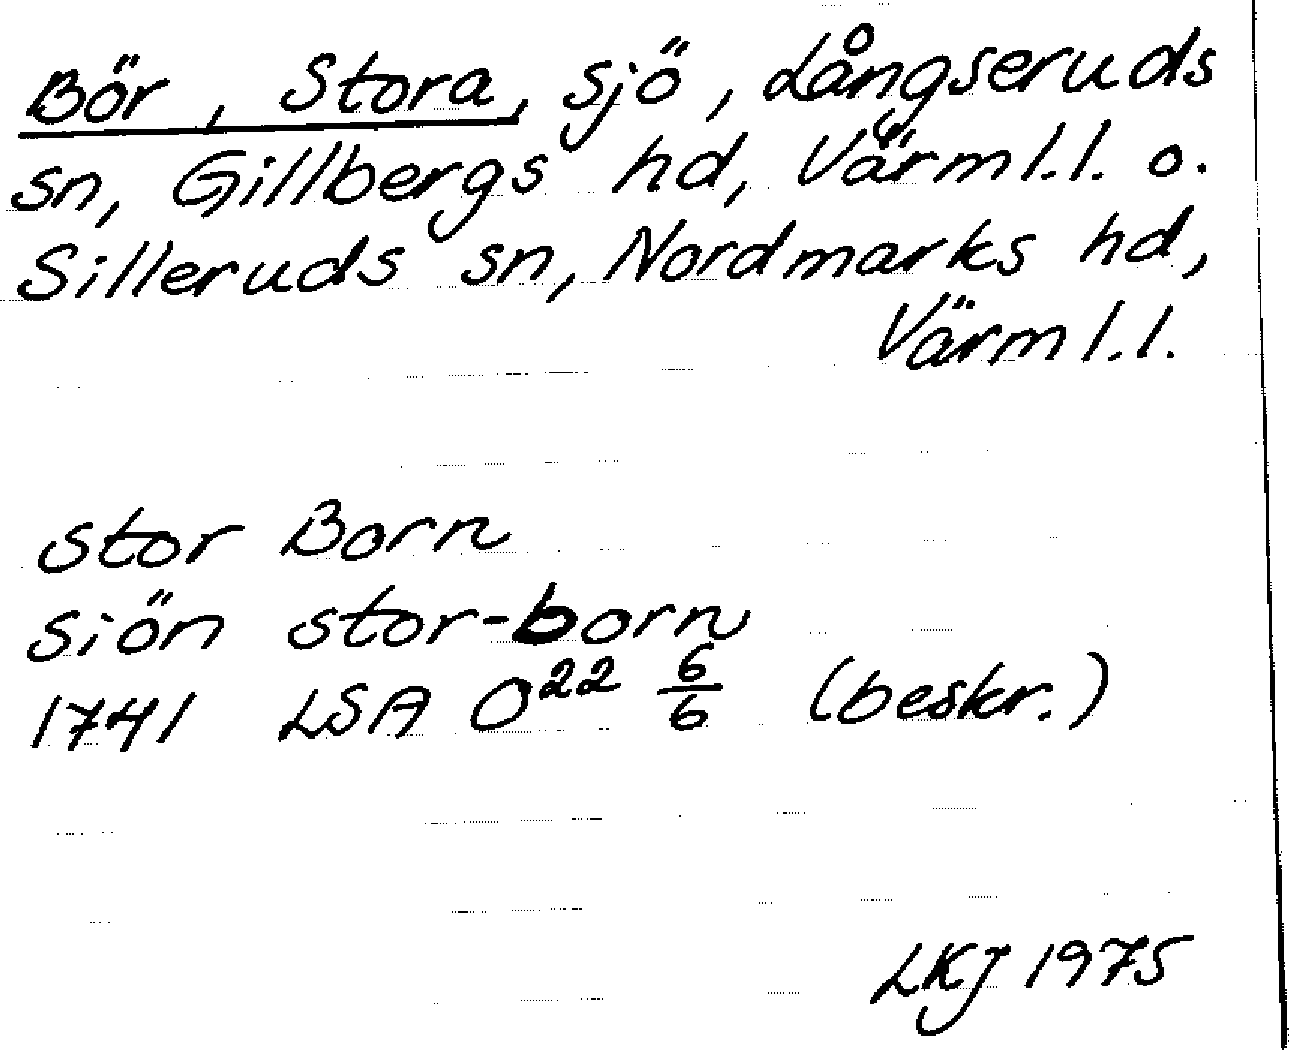 Bör, Stora, sjö, Långseruds
sn, Gillbergs hd, Värml.l. o.
Silleruds sn, Nordmarks hd,
Värml.l.
stor Born
siön stor-born
1741 LSA O²² 6/6 (beskr.)
LKJ 1975